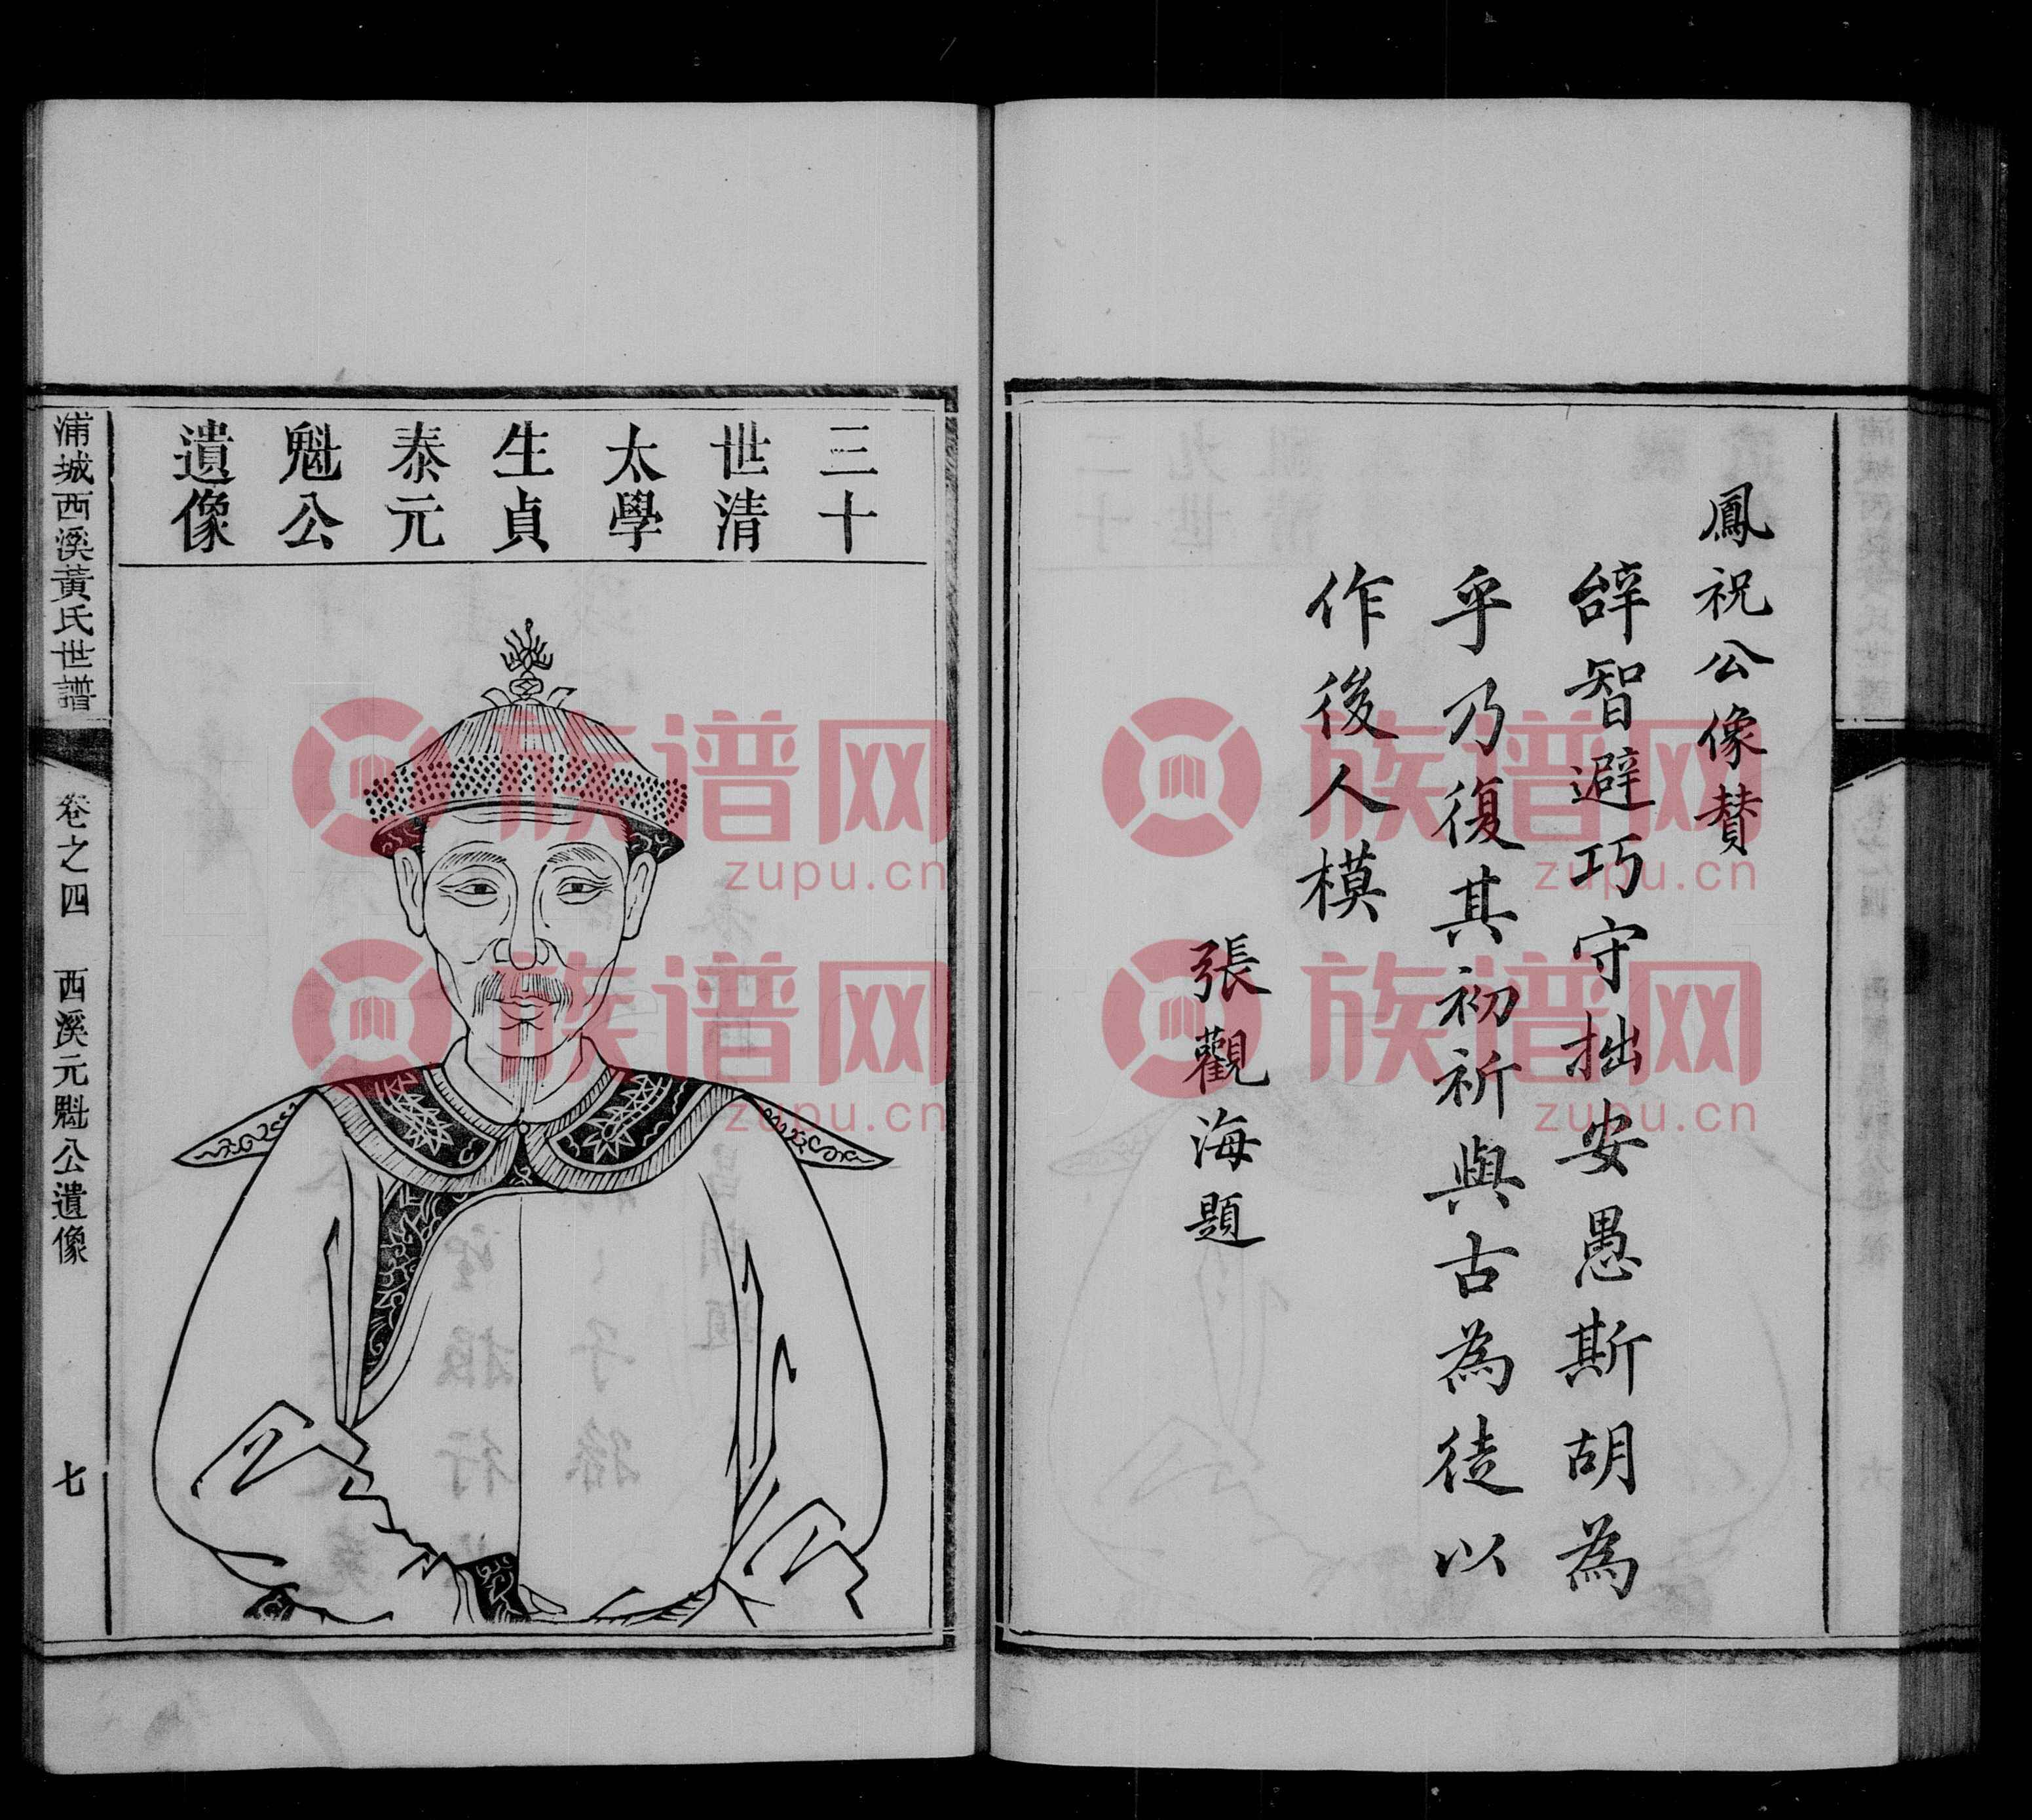 鳳祝公像賛
辝智避巧守拙安愚斯胡為
乎乃復其初祈與古為徒以
作後人模
張觀海題
三十
世清
太學
生貞
泰元
魁公
遺像
浦城西溪黃氏世譜
卷之四 西溪元魁公遺像
七
族谱网
zupu.cn
族谱网
zupu.cn
族谱网
zupu.cn
族谱网
zupu.cn